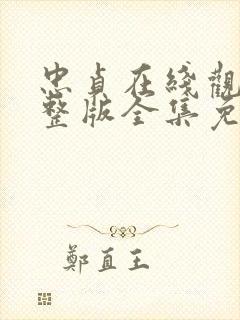 忠貞在綫觀
整版全集免
鄭直王